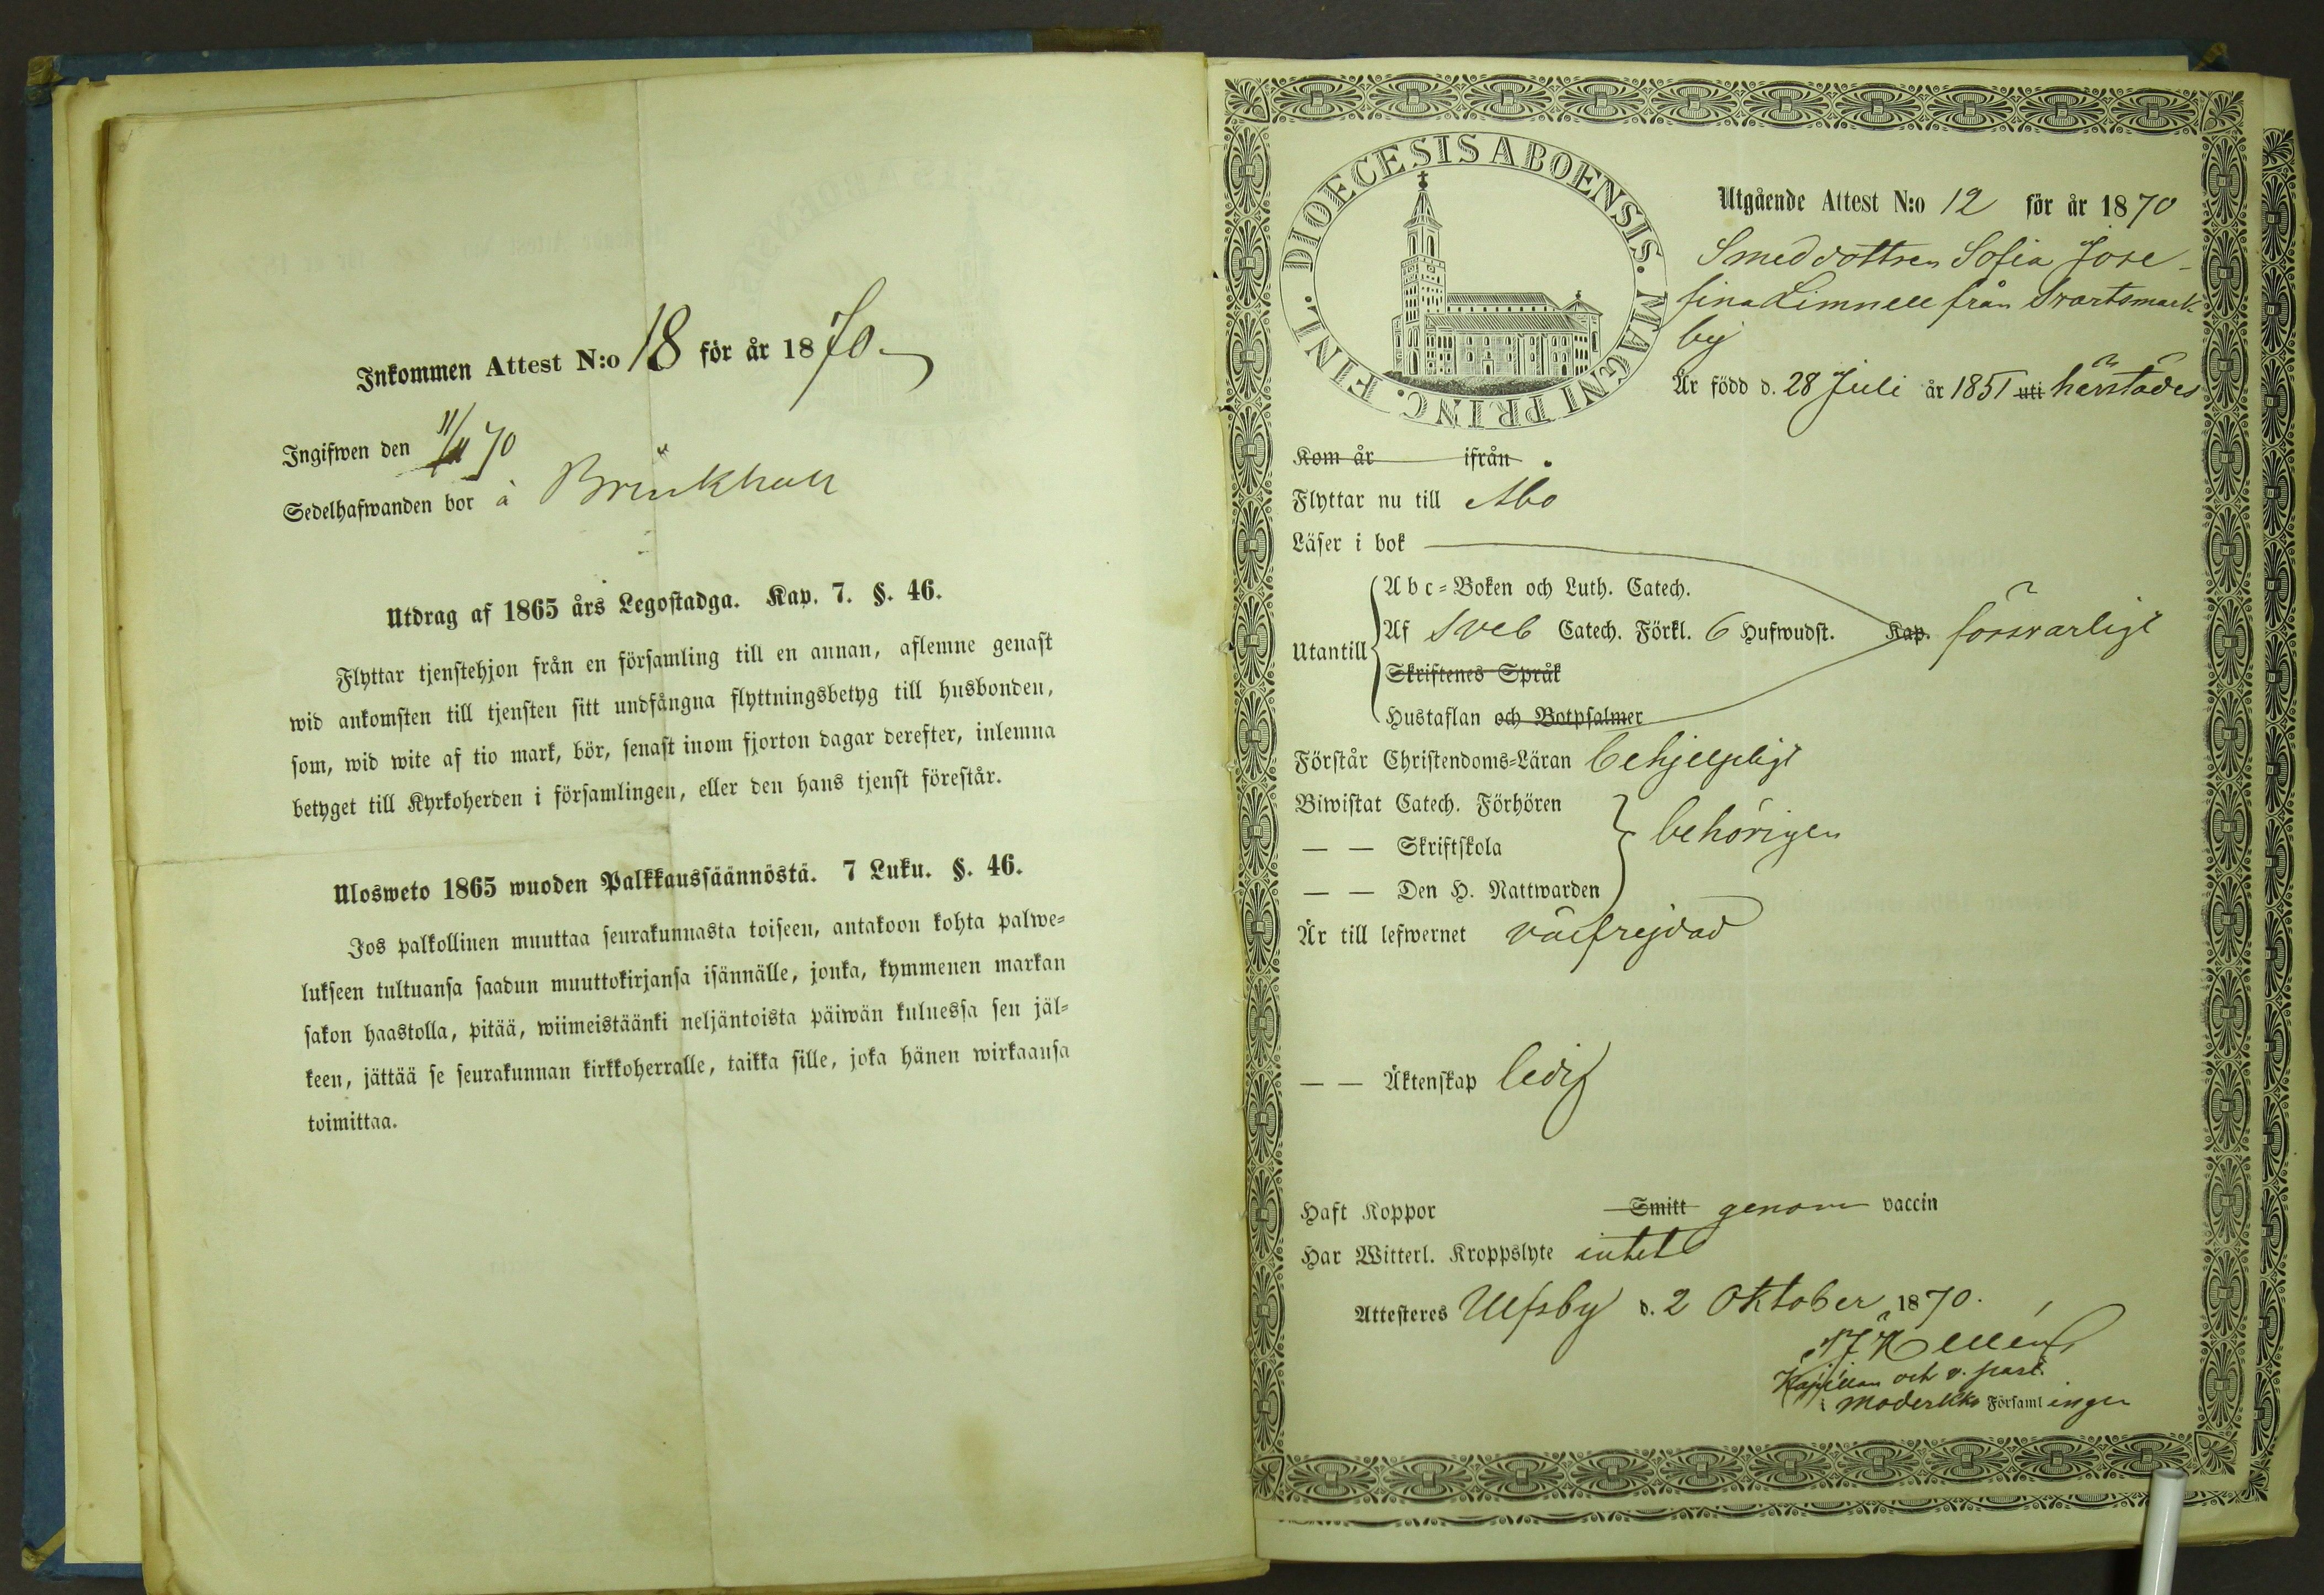 Inkommen Attest N:o 18 för år 1870
Ingifwen den 11/11 70
Sedelhafwanden bor å Brinkhall
Utdrag af 1865 års Legostadga. Kap. 7. §. 46.
Flyttar tjenstehjon från en församling till en annan, aflemne genast
wid ankomsten till tjensten sitt undfångna flyttningsbetyg till husbonden,
som, wid wite af tio mark, bör, senast inom fjorton dagar derefter, inlemna
betyget till Kyrkoherden i församlingen, eller den hans tjenst förestår.
Ulosweto 1865 wuoden Palkkaussäännöstä. 7 Luku. §. 46.
Jos palkollinen muuttaa seurakunnasta toiseen, antakoon kohta palwe=
lukseen tultuansa saadun muuttokirjansa isännälle, jonka, kymmenen markan
sakon haastolla, pitää, wiimeistäänki neljäntoista päiwän kuluessa sen jäl=
keen, jättää se seurakunnan kirkkoherralle, taikka sille, joka hänen wirkaansa
toimittaa.
DIOECESIS ABOENSIS. MAGNI PRINC. FINL.
Utgående Attest N:o 12 för år 1870
Smeddottren Sofia Jose-
fina Limnell från Svartsmark
by
Är född d. 28 Juli år 1851 uti härstädes
Kom år ifrån
Flyttar nu till Åbo
Läser i bok
Utantill
Abc=Boken och Luth. Catech.
Af Sveb Catech. Förkl. 6 Hufwudst. Kap. försvarligt
Skriftenes Språk
Hustaflan och Botpsalmer
Förstår Christendoms=Läran behjelpligt
Biwistat Catech. Förhören
— — Skriftskola behörigen
— — Den H. Nattwarden
Är till lefwernet välfrejdad
— — Äktenskap ledig
Haft Koppor Smitt genom vaccin
Har Witterl. Kroppslyte intet
Attesteres Ulfsby d. 2 Oktober 1870.
Kapellan och v. past.
i Moderkko Församlingen